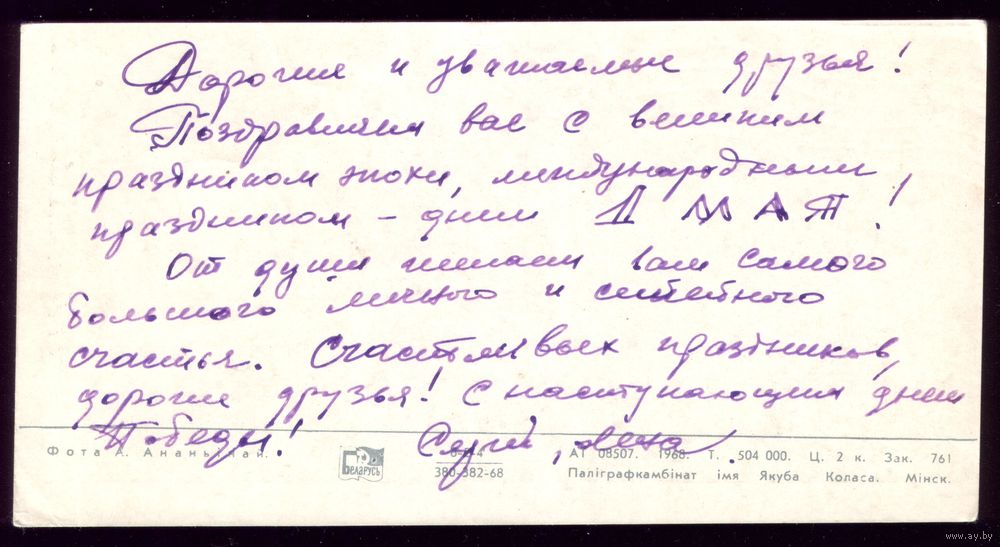 Дорогие и уважаемые друзья!
Поздравляем вас с великим
праздником эпохи, международным
праздником - днем 1 МАЯ!
От души желаем вам самого
большого личного и семейного
счастья. Счастливых праздников,
дорогие друзья! С наступающим днем
Победы! Сергей, Лена.
Фота А. Ананьінай.
Беларусь
6-84
380-382-68
АТ 08507. 1968. Т. 504 000. Ц. 2 к. Зак. 761
Паліграфкамбінат імя Якуба Коласа. Мінск.
www.ay.by